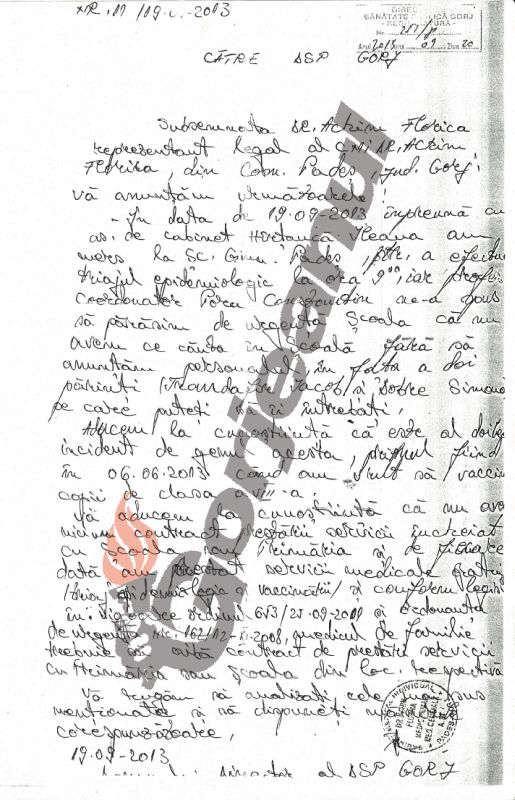 NR. 111/19.
DIREC
SĂNĂTATE PUBLICĂ GORJ
Nr.
Anul 2013 luna 09 Ziua 20
CĂTRE DSP GORJ
Subsemnata DR. Achim Florica
reprezentant legal al CMI DR. Achim
Florica, din Com. Padeș, Jud. Gorj,
vă anunțăm următoarele:
- În data de 19.09.2013 împreună cu
as. de cabinet Ileana am
mers la Șc. Gim. Padeș, ptr. a efectua
triajul epidemiologic la ora 9⁰⁰, iar
coordonator Constantin ne-a spus
să părăsim de urgență Școala că nu
avem ce căuta în școală fără să
anunțăm personalul, în fața a doi
părinți Iacob și Simona
pe care puteți să-i întrebați,
Aducem la cunoștință că este al doilea
incident de genul acesta, primul fiind
în 06.06.2013 când am vrut să vaccin
copii de clasa a VIII-a.
Vă aducem la cunoștință că nu avem
nici un contract prestării servicii încheiat
cu Școala sau Primăria și de fiecare
dată am prestat servicii medicale gratuit
(triaj epidemiologic, vaccinării) și conform legii
în vigoare 653/25.09.2001 și ordonanta
de urgență Nr. 162/12. 2008, medicul de familie
trebuie să aibă contract de prestări servicii
cu Primăria sau Școala din loc. respectivă
Vă rugăm să analizați cele mai sus
menționate și să dispuneți
corespunzătoare,
19.09-2013
al DSP GORJ
Gorjeanul